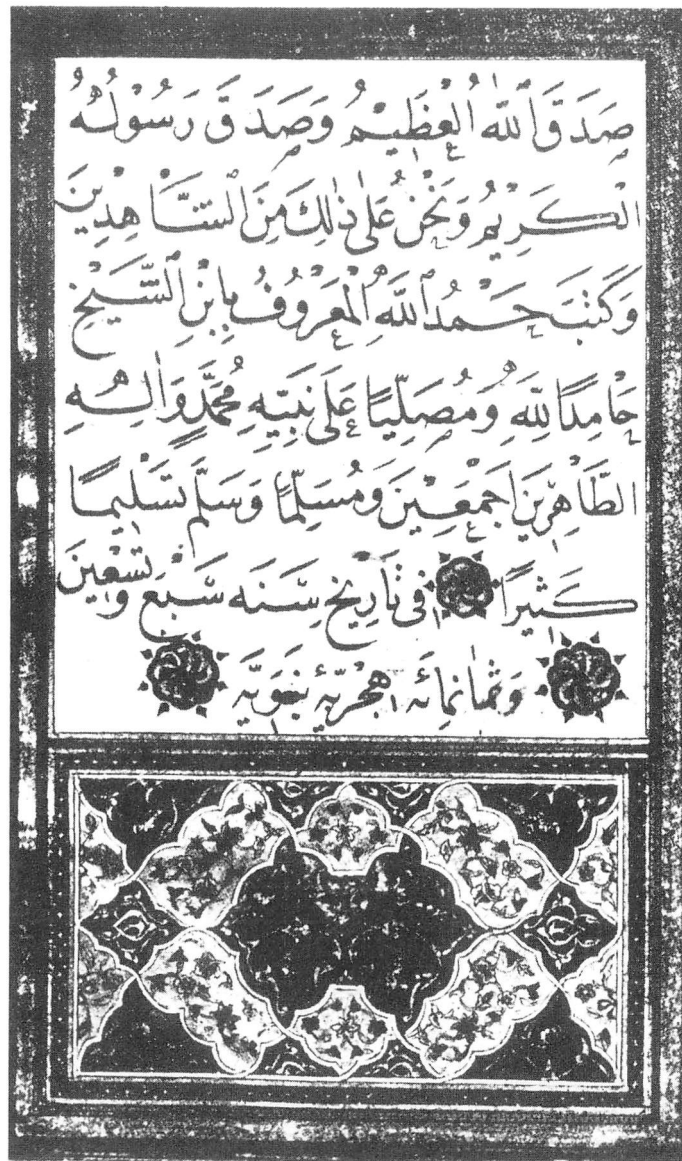 صَدَقَ ٱللّٰهُ ٱلْعَظِيْمُ وَصَدَقَ رَسُوْلُهُ
الْكَرِيْمُ وَنَحْنُ عَلٰى ذٰلِكَ مِنَ ٱلشَّاهِدِيْنَ
وَكَتَبَ حَمْدُ ٱللّٰهِ ٱلْمَعْرُوْفُ بِابْنِ ٱلشَّيْخِ
حَامِدًا لِلّٰهِ وَمُصَلِّيًا عَلٰى نَبِيِّهِ مُحَمَّدٍ وَاٰلِهِ
الطَّاهِرِيْنَ اَجْمَعِيْنَ وَمُسَلِّمًا وَسَلَّمَ تَسْلِيْمًا
كَثِيْرًا فِى تَارِيْخِ سَنَه سَبْعَ وَتِسْعِيْنَ
وَثَمَانمِائَه هِجْرِيَّه نَبَوِيَّه